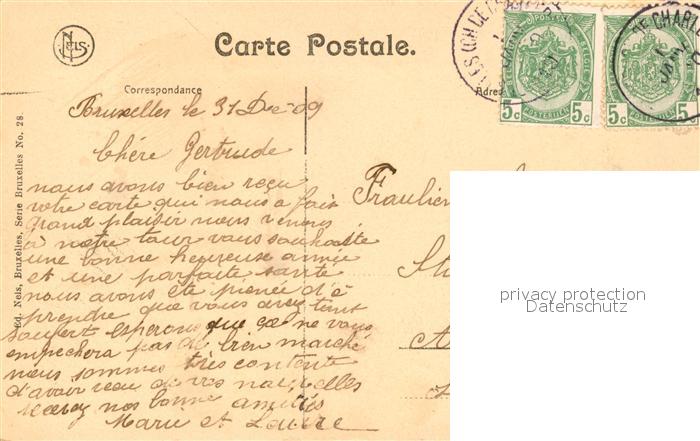 Nels
Carte Postale.
Correspondance
Adres
POSTES
5c 5c
5c 5c
Ed. Nels, Bruxelles, Serie Bruxelles No. 28.
Bruxelles le 31 Dec-09
Chère Gertrude
nous avons bien reçu
votre carte qui nous a fait
grand plaisir nous venons
à notre tour vous souhaite
une bonne heureuse année
et une parfaite santé
nous avons été pienée d'é
prendre que vous avez tant
soufert esperons que ça ne vous
empechera pas de bien marché
nous sommes très contente
d'avoir reçu de vos nouvelles
recevez nos bonne amitiés
Marie et Laure
Fraulien
privacy protection
Datenschutz